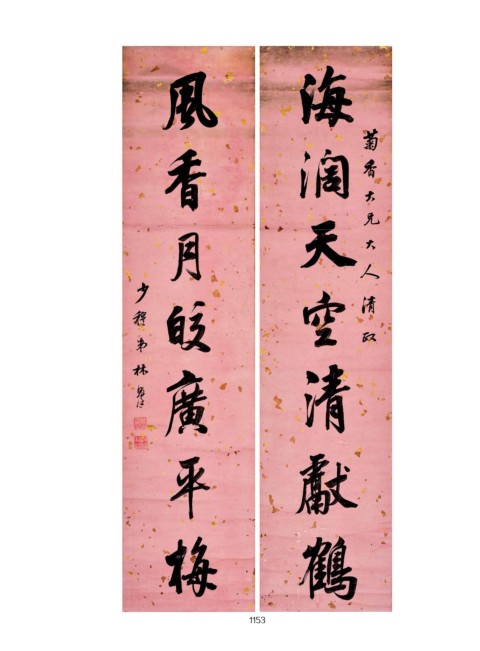 菊香大兄大人清政
海阔天空清獻鶴
風香月皎廣平梅
少穆弟林
1153